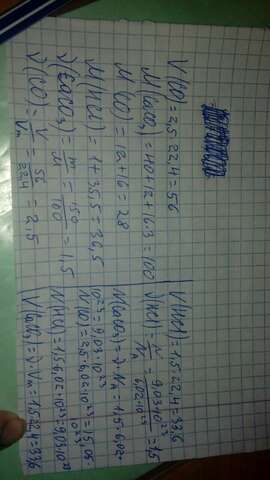 V(CO) = 2,5 · 22,4 = 56
M(CaCO₃) = 40+12+16·3 = 100
M(CO) = 12+16 = 28
M(HCl) = 1+35,5 = 36,5
ν(CaCO₃) = m/M = 150/100 = 1,5
ν(CO) = V/Vₘ = 56/22,4 = 2,5
V(HCl) = 1,5·22,4 = 33,6
ν(HCl) = N/Nₐ = 9,03·10²³/6,02·10²³ = 1,5
N(CaCO₃) = ν·Nₐ = 1,5·6,02·
10²³ = 9,03·10²³
N(CO) = 2,5·6,02·10²³ = 15,05·
10²³
N(HCl) = 1,5·6,02·10²³ = 9,03·10²³
V(CaCO₃) = ν·Vₘ = 1,5·22,4 = 33,6